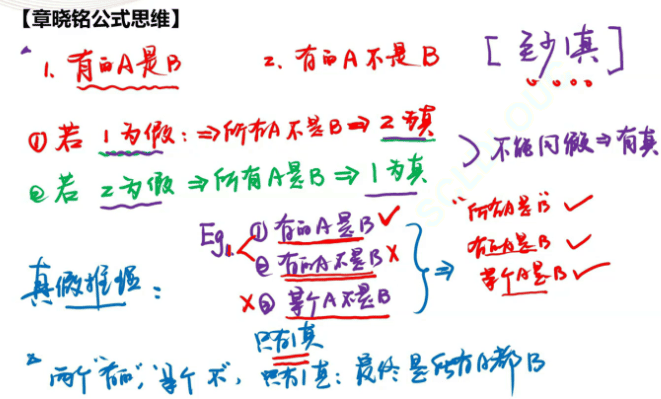 【章晓铭公式思维】
1. 有的A是B 2. 有的A不是B [至少1真]
① 若 1为假: ⇒所有A不是B ⇒ 2为真
② 若 2为假 ⇒所有A是B ⇒ 1为真
不能同假⇒有真
Eg. ① 有的A是B ✓
② 有的A不是B ×
× ③ 某个A不是B
只有1真
⇒ "所有A是B" ✓
有的A是B ✓
某个A是B ✓
真假推理:
两个"有的", "某个 不", 只有1真: 最终是所有A都B